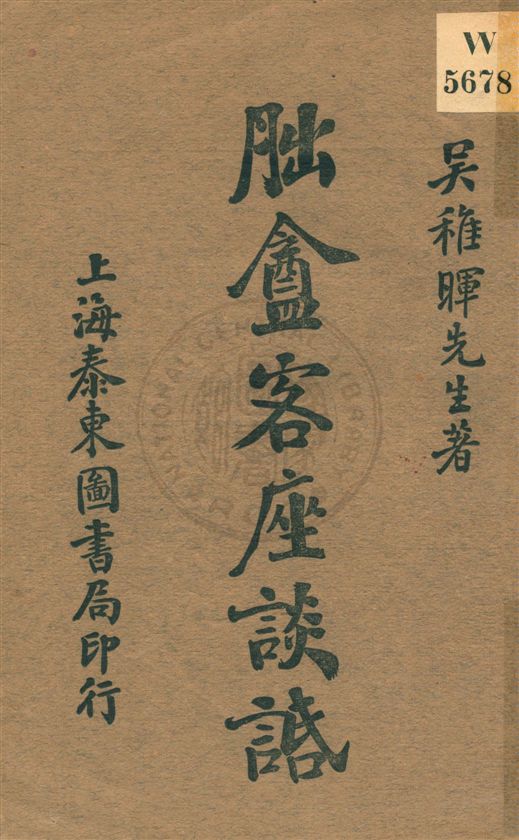 W
5678
吳稚暉先生著
朏盦客座談話
上海泰東圖書局印行